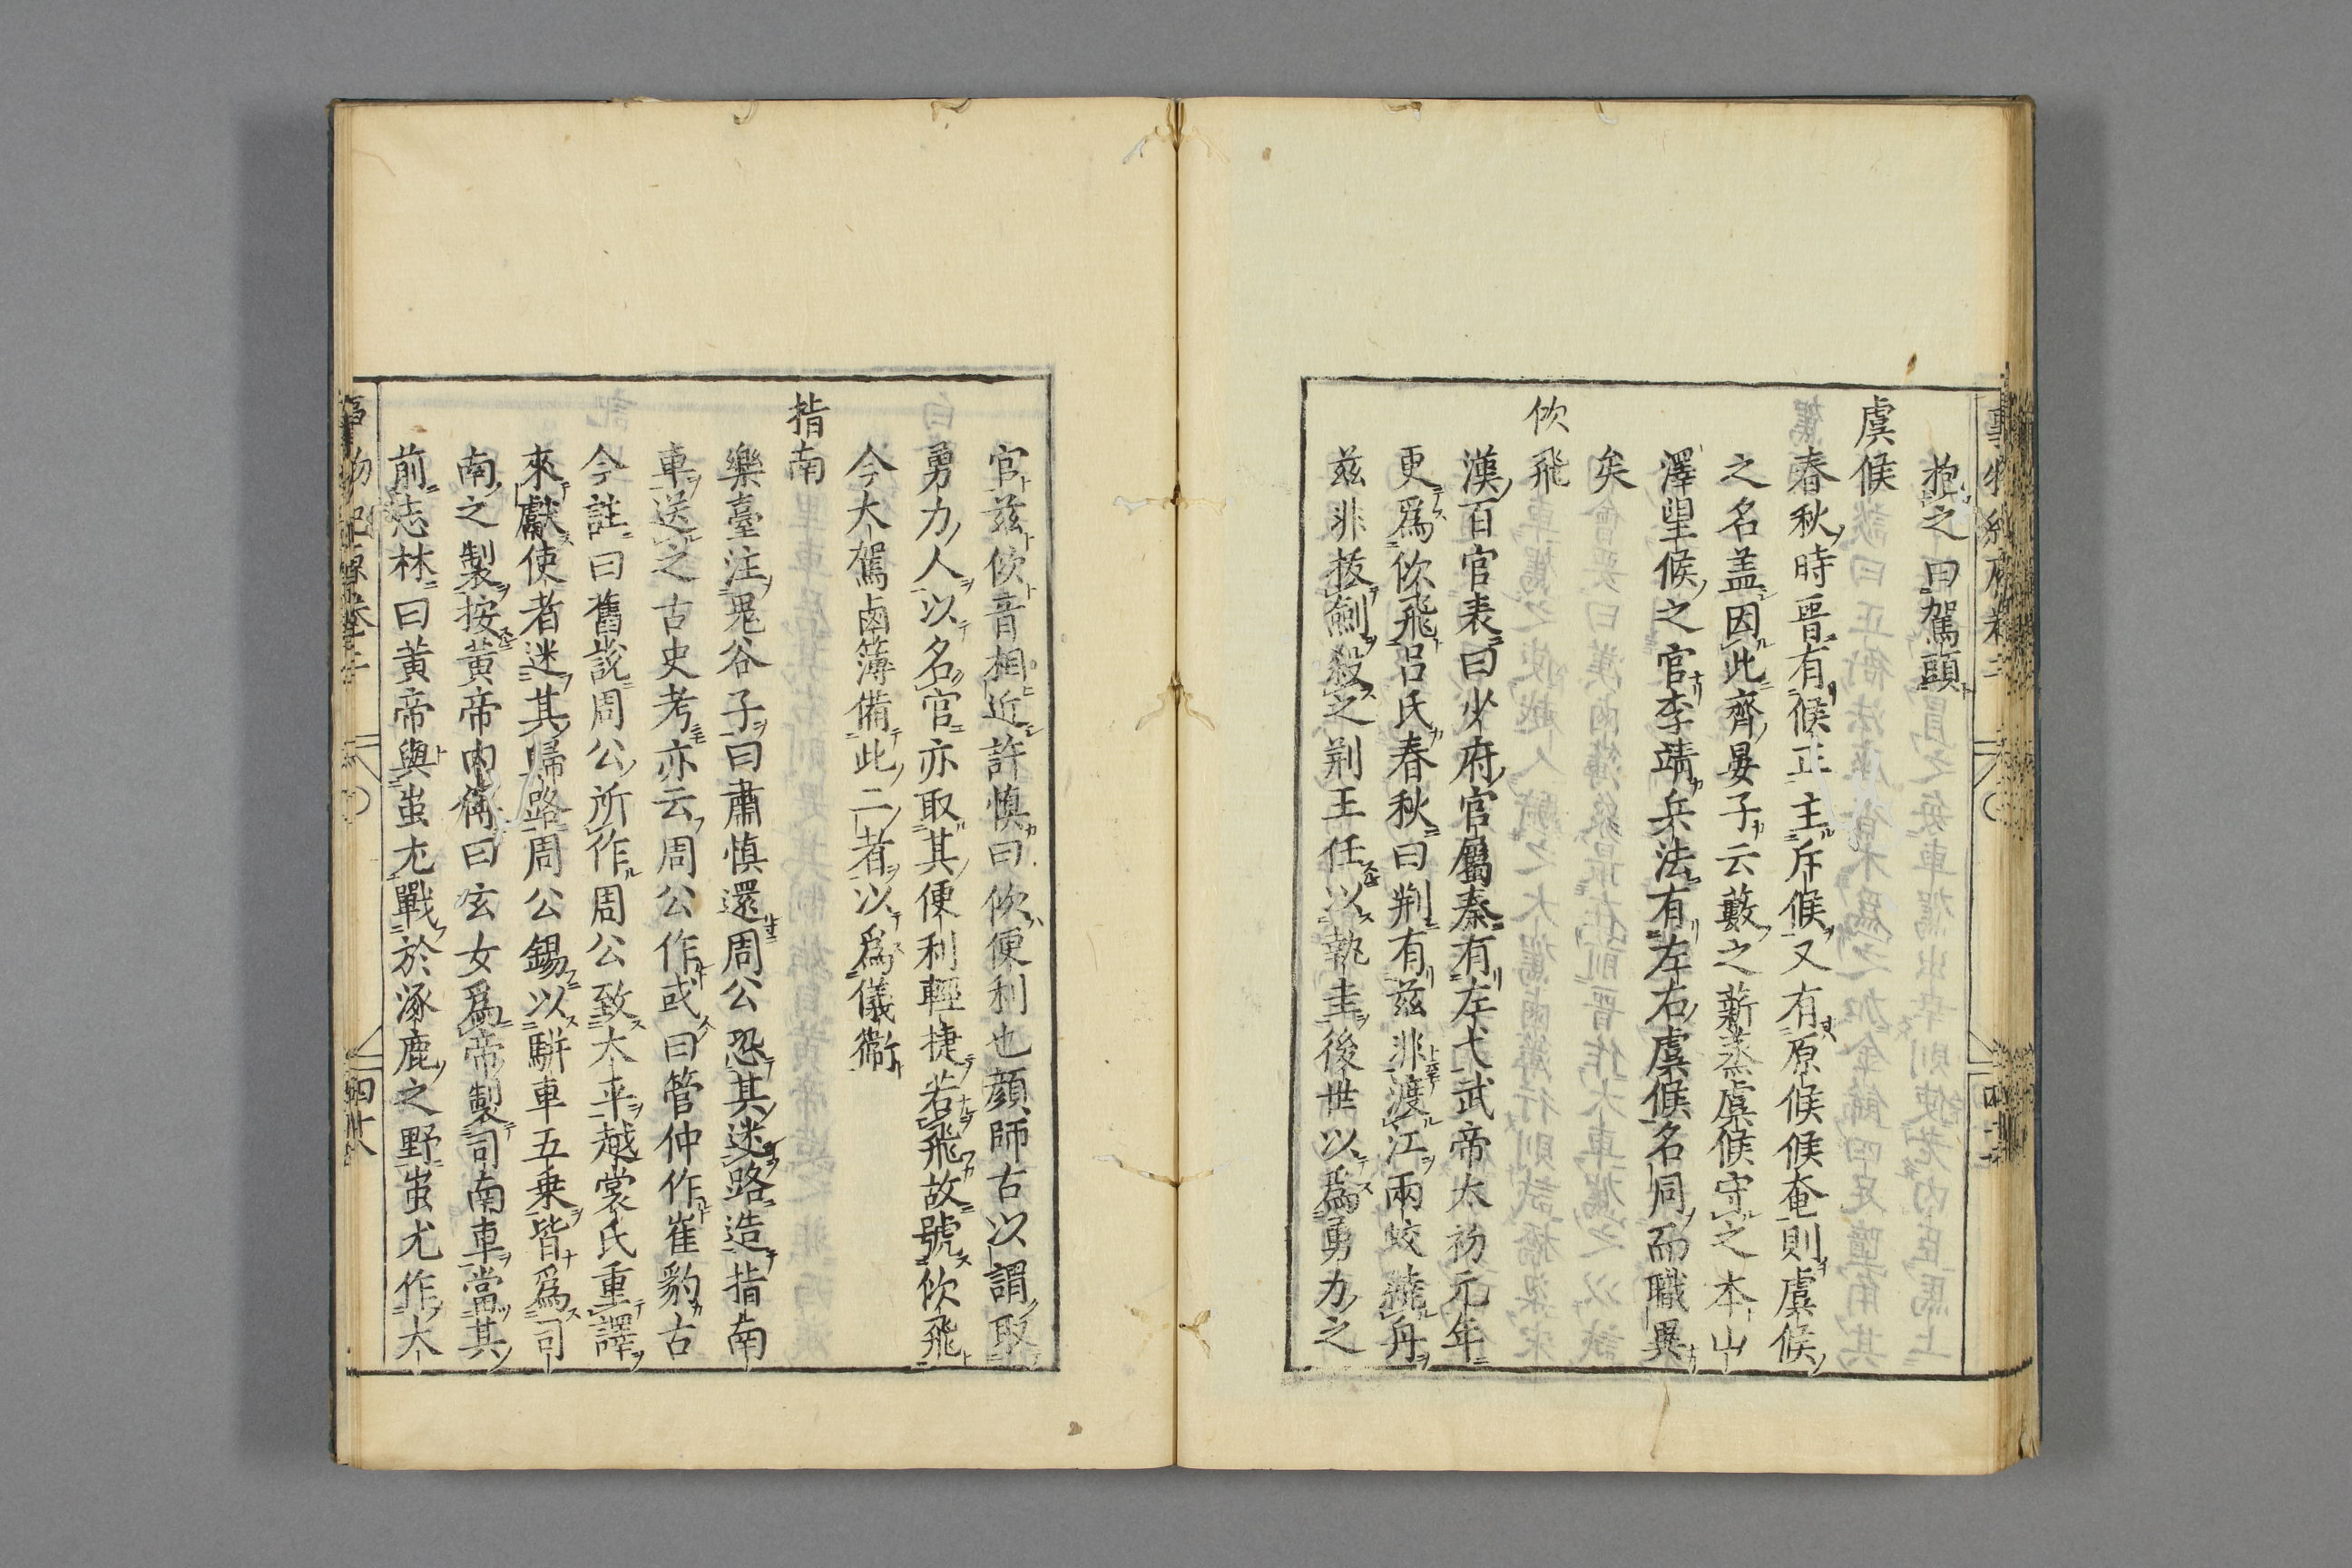 抱之曰駕頭
虞候
春秋時晉有候正主斥候又有原候候奄則虞候
之名盖因此齊晏子云藪之薪蒸虞候守之本山
澤望候之官李靖兵法有左右虞候名同而職異
矣
佽飛
漢百官表曰少府官屬秦有左弋武帝太初元年
更爲佽飛呂氏春秋曰荆有兹非渡江兩蛟繞舟
兹非拔劒殺之荆王任以執圭後世以爲勇力之
官兹佽音相近許慎曰佽便利也顔師古以謂取
勇力人以名官亦取其便利輕捷若飛故號佽飛
今大駕鹵簿備此二者以爲儀衞
指南
樂臺注鬼谷子曰肅慎還周公恐其迷路造指南
車送之古史考亦云周公作或曰管仲作崔豹古
今註曰舊說周公所作周公致太平越裳氏重譯
來獻使者迷其歸路周公錫以駢車五乗皆爲司
南之製按黄帝内傳曰玄女爲帝製司南車當其
前志林曰黄帝與蚩尤戰於涿鹿之野蚩尤作大